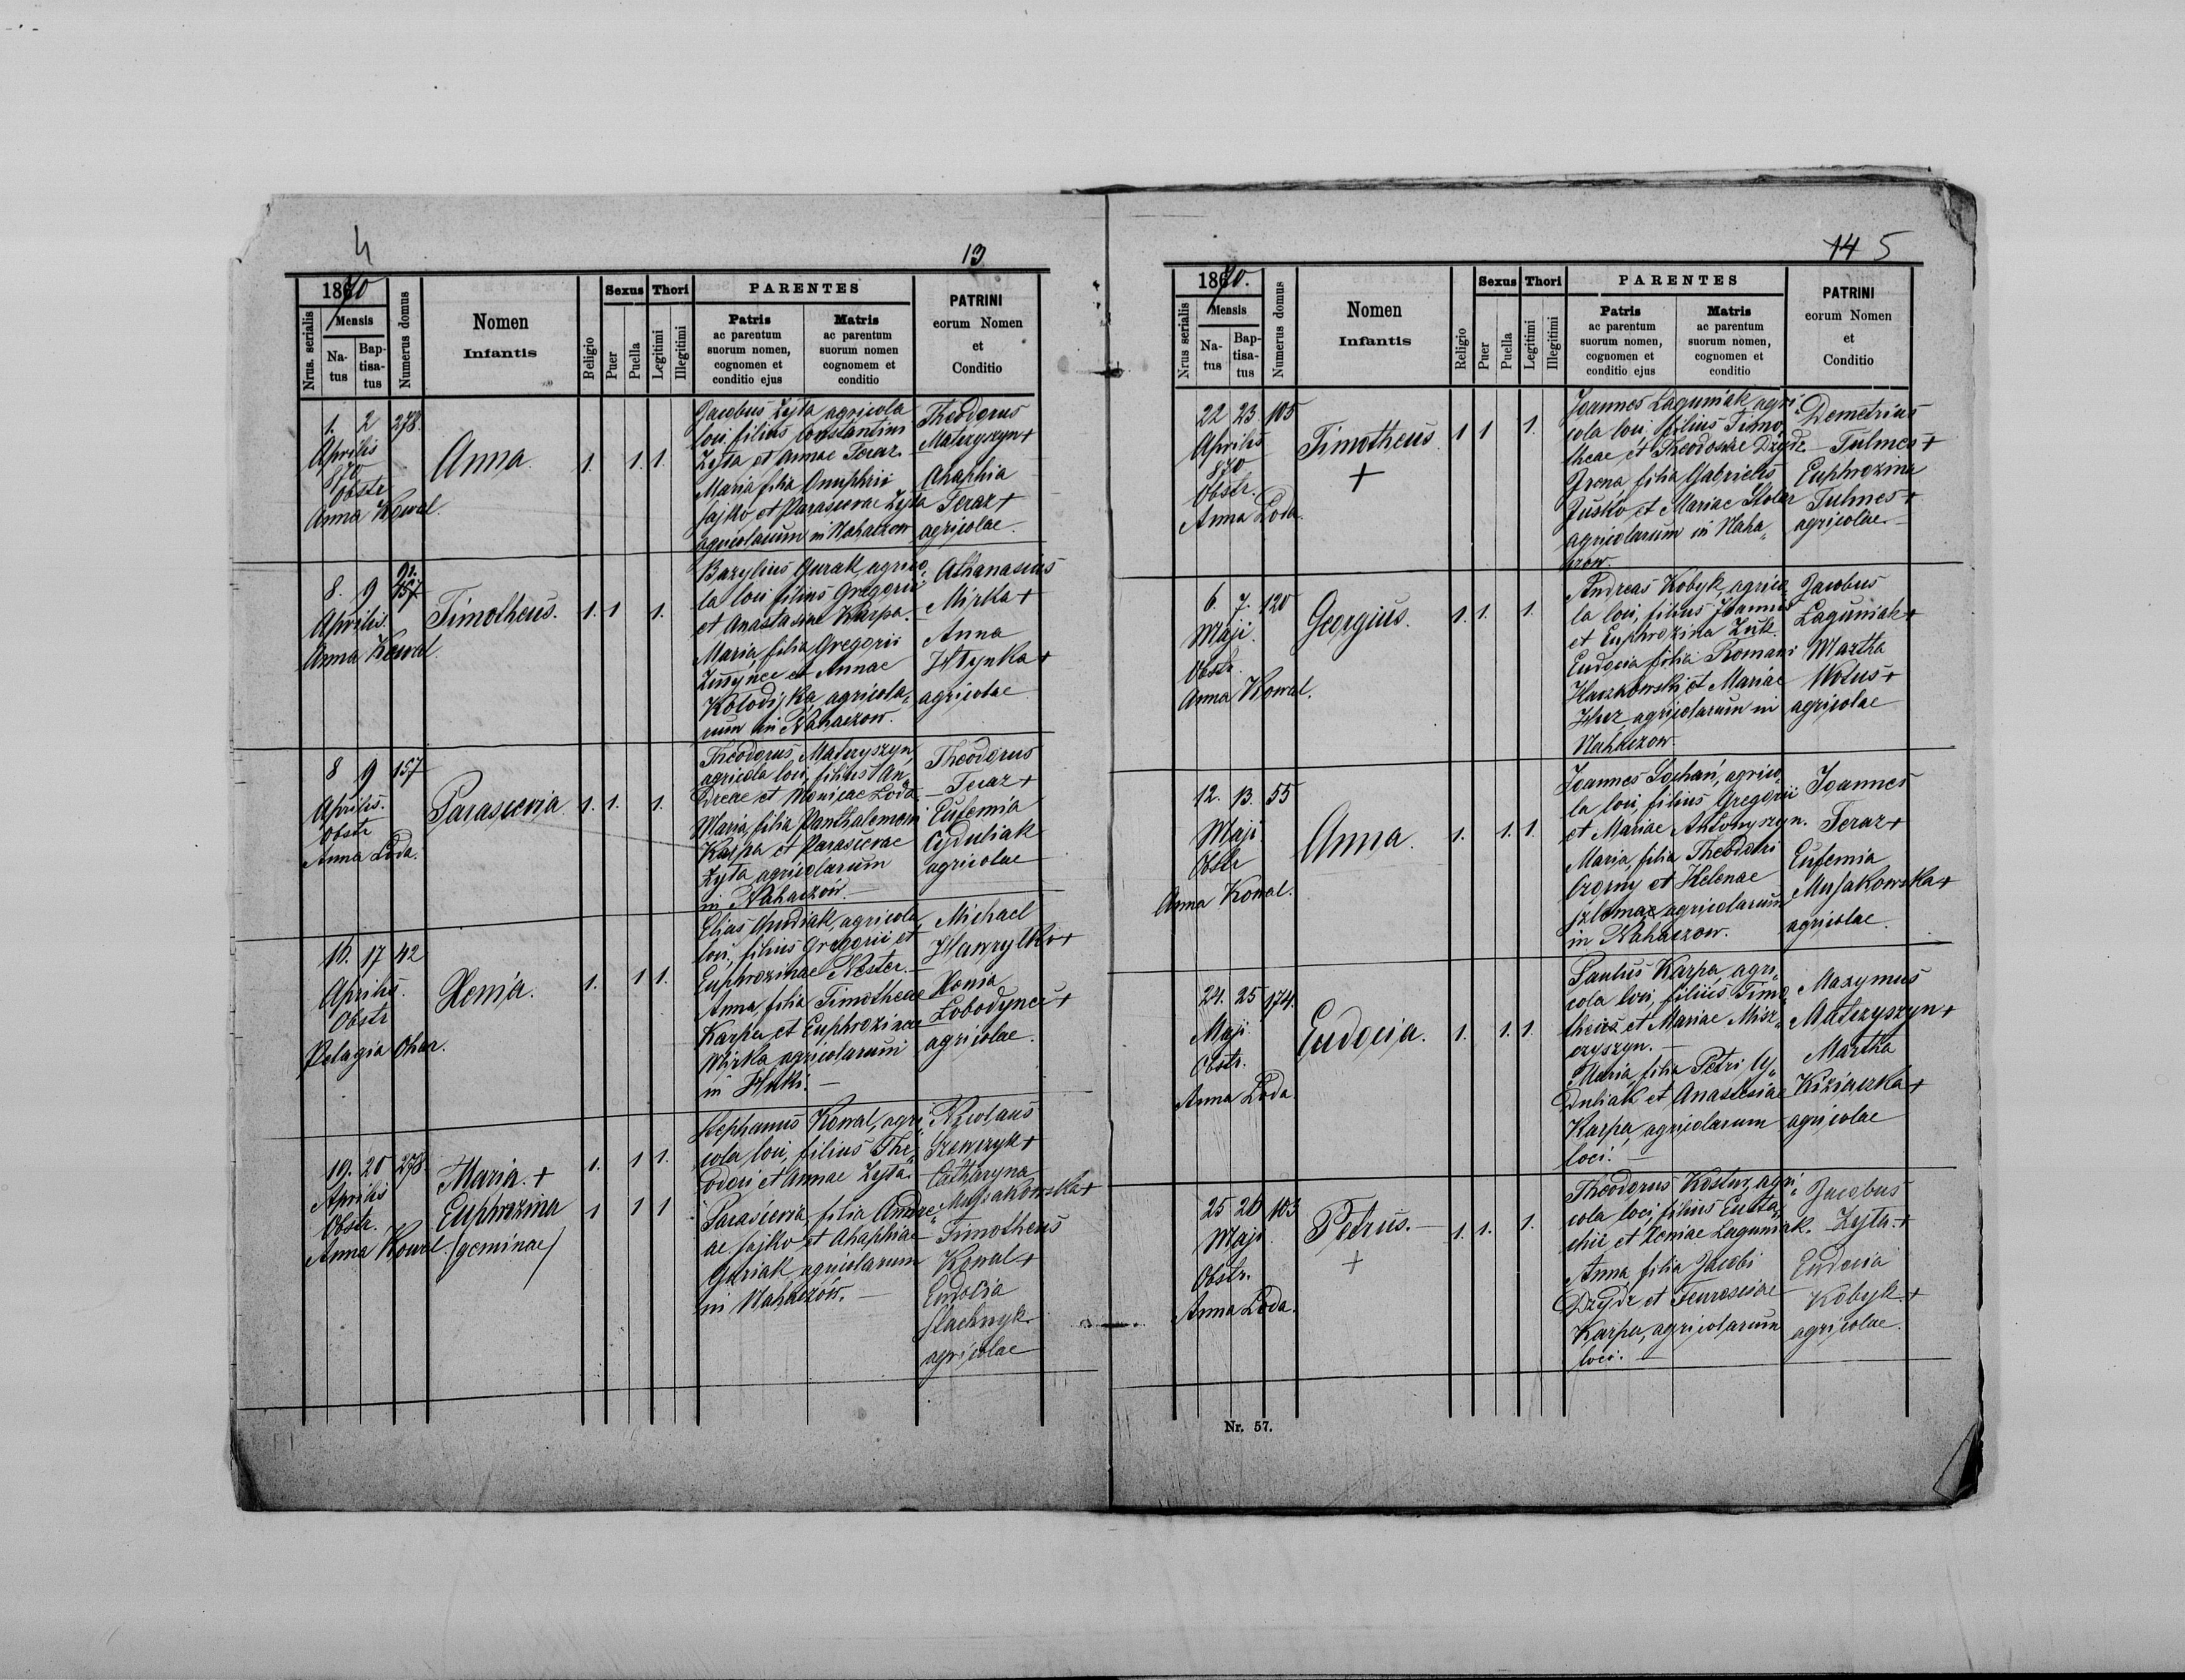 4
13
1870
Nrus. serialis
Mensis
Na-
tus
Bap-
tisa-
tus
Numerus domus
Nomen
Infantis
Religio
Sexus
Puer
Puella
Thori
Legitimi
Illegitimi
PARENTES
Patris
ac parentum
suorum nomen,
cognomen et
conditio ejus
Matris
ac parentum
suorum nomen
cognomem et
conditio
PATRINI
eorum Nomen
et
Conditio
1. 2 278.
Aprilis
870
Obstr
Anna Kowal.
Anna
1. 1. 1.
Jacobus Zyta agricola
loci filius Constantini
Zyta et Annae Teraz.
Maria filia Onuphrii
Sajko et Parascevae Zyta
agricolarum in Nahaczow
Theodorus
Materyszyn +
Ahaphia
Teraz +
agricolae.
8. 9 91. 157
Aprilis.
Anna Kowal.
Timotheus.
1. 1 1.
Bazylius Gurak, agrico„
la loci filius Gregorii
et Anastasiae Karpa.
Maria, filia Gregorii
et Annae
Kolodijka, agricola„
rum in Nahaczow.
Athanasius
Mirka +
Anna
Hrynka +
agricolae
8 9 157
Aprilis.
Obstr
Anna Loda.
Parascevia
1. 1. 1.
Theodorus Materyszyn,
agricola loci, filius An„
dreae et Monicae Loda.
Maria, filia Panthalemoni
Karpa et Parascevae
Zyta agricolarum
in Nahaczów.
Theodorus
Teraz +
Eufemia
Cyduliak
agricolae
16. 17 42
Aprilis.
Obstr
Pelagia
Xenia.
1. 1 1.
Elias Gudiak, agricola
loci, filius Gregorii et
Euphrozinae Nester.
Anna filia Timotheae
Karpa et Euphrozinae
Mirka agricolarum
in Huki.
Michael
Hawrylko +
Xenia
Lobodynce +
agricolae.
19. 20 278
Aprilis
Obstr.
Anna Kowal.
Maria. +
Euphrozina
/geminae/
1. 1 1.
1 1 1
Stephanus Kowal, agri„
cola loci, filius The„
odori et Annae Zyta.
Parascevia, filia Andre„
ae Sajko et Ahaphiae
Guriak agricolarum
in Nahaczów.
Nicolaus
Szewczyk +
Catharyna
Musakowska +
Timotheus
Kowal +
Eudocia
Slachnyk
agricolae
14 5
1870.
Nrus serialis
Mensis
Na-
tus
Bap-
tisa-
tus
Numerus domus
Nomen
Infantis
Religio
Sexus
Puer
Puella
Thori
Legitimi
Illegitimi
PARENTES
Patris
ac parentum
suorum nomen,
cognomen et
conditio ejus
Matris
ac parentum
suorum nomen,
cognomen et
conditio
PATRINI
eorum Nomen
et
Conditio
22 23 105
Aprilis
870
Obstr.
Anna Loda.
Timotheus
+
1 1 1.
Joannes Laguniak agri„
cola loci filius Timo„
theae et Theodosiae Dzydz
Irena filia Gabrielis
Jusko et Mariae Stolar
agricolarum in Naha„
czow.
Demetrius
Tulmes +
Euphrozina
Tulmes +
agricolae.
6. 7. 120
Maji.
Obstr.
Anna Kowal.
Georgius.
1. 1. 1.
Andreas Kobyk, agrico„
la loci, filius Joannis
et Euphrozina Zuk.
Eudocia filia Romani
Haczkowski et Mariae
agricolarum in
Nahaczow.
Jacobus
Laguniak +
Martha
Wolus +
agricolae
12. 13. 55
Maji
Obstr
Anna Kowal.
Anna.
1. 1. 1.
Joannes Lochan, agrico„
la loci, filius Gregorii
et Mariae Antonyszyn.
Maria, filia Theodori
Czorny et Helenae
agricolarum
in Nahaczow.
Joannes
Teraz +
Eufemia
Musakowska +
agricolae.
24. 25 174.
Maji
Obstr.
Anna Loda
Eudocia.
1. 1. 1.
Paulus Karpa, agri„
cola loci, filius Timo„
thei et Mariae Misz„
czyszyn.
Maria, filia Petri Cy„
duliak et Anastasiae
Karpa, agricolarum
loci.
Maxymus
Materyszyn +
Martha
Kiziaczka +
agricolae
25 26 103
Maji
Obstr.
Anna Loda.
Petrus.
+
1. 1. 1.
Theodorus Kostur, agri„
cola loci, filius Eusta„
chii et Xeniae Laguniak.
Anna, filia Jacobi
Dzydz et Feurosiae
Karpa, agricolarum
loci.
Jacobus
Zyta +
Eudocia
Kobyk. +
agricolae.
Nr. 57.